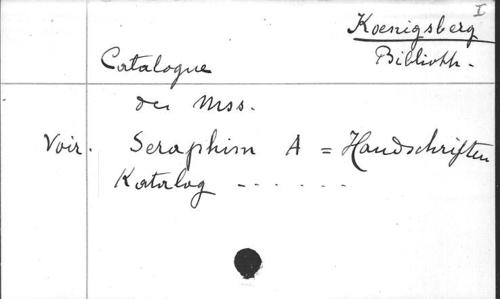 I
Koenigsberg
Biblioth.
Catalogue
des Mss.
Voir. Seraphim A = Handschriften
Katalog - - - - - -